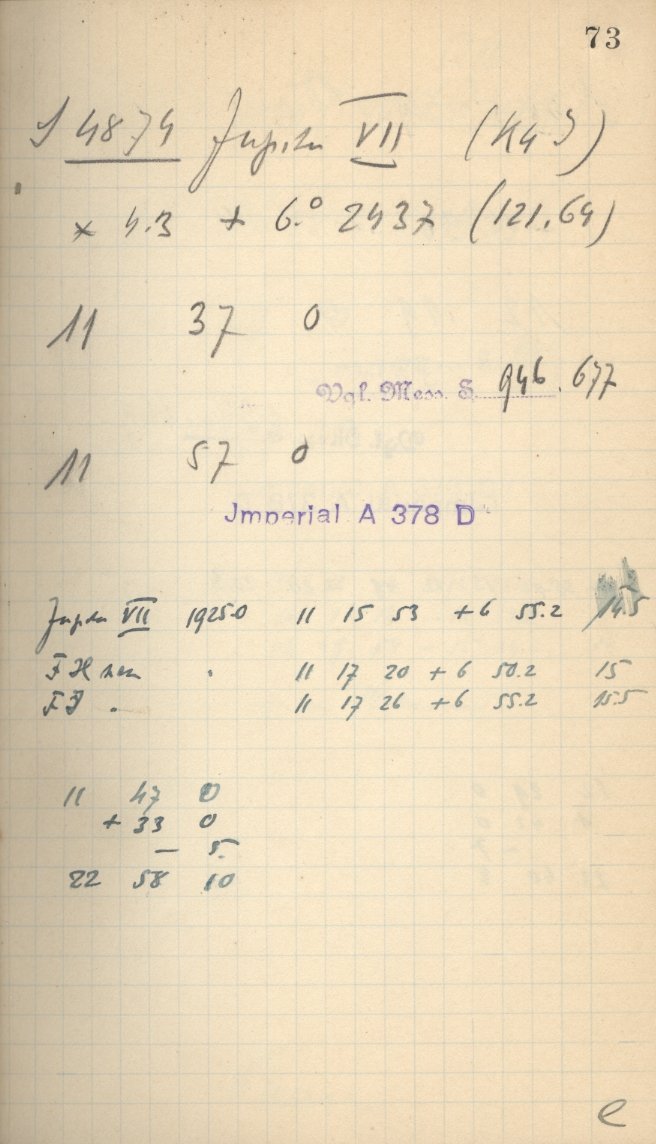 73
J 4874 Jupiter VII (K4J)
x 4.3 + 6.° 2437 (121.64)
11 37 0
Vgl. Mess. S. 946.677
11 57 0
Jmperial A 378 D
Jupiter VII 1925.0 11 15 53 +6 55.2 14.5
FH neu . 11 17 20 +6 50.2 15
FJ . 11 17 26 +6 55.2 15.5
11 47 0
+ 33 0
— 5.
22 58 10
e